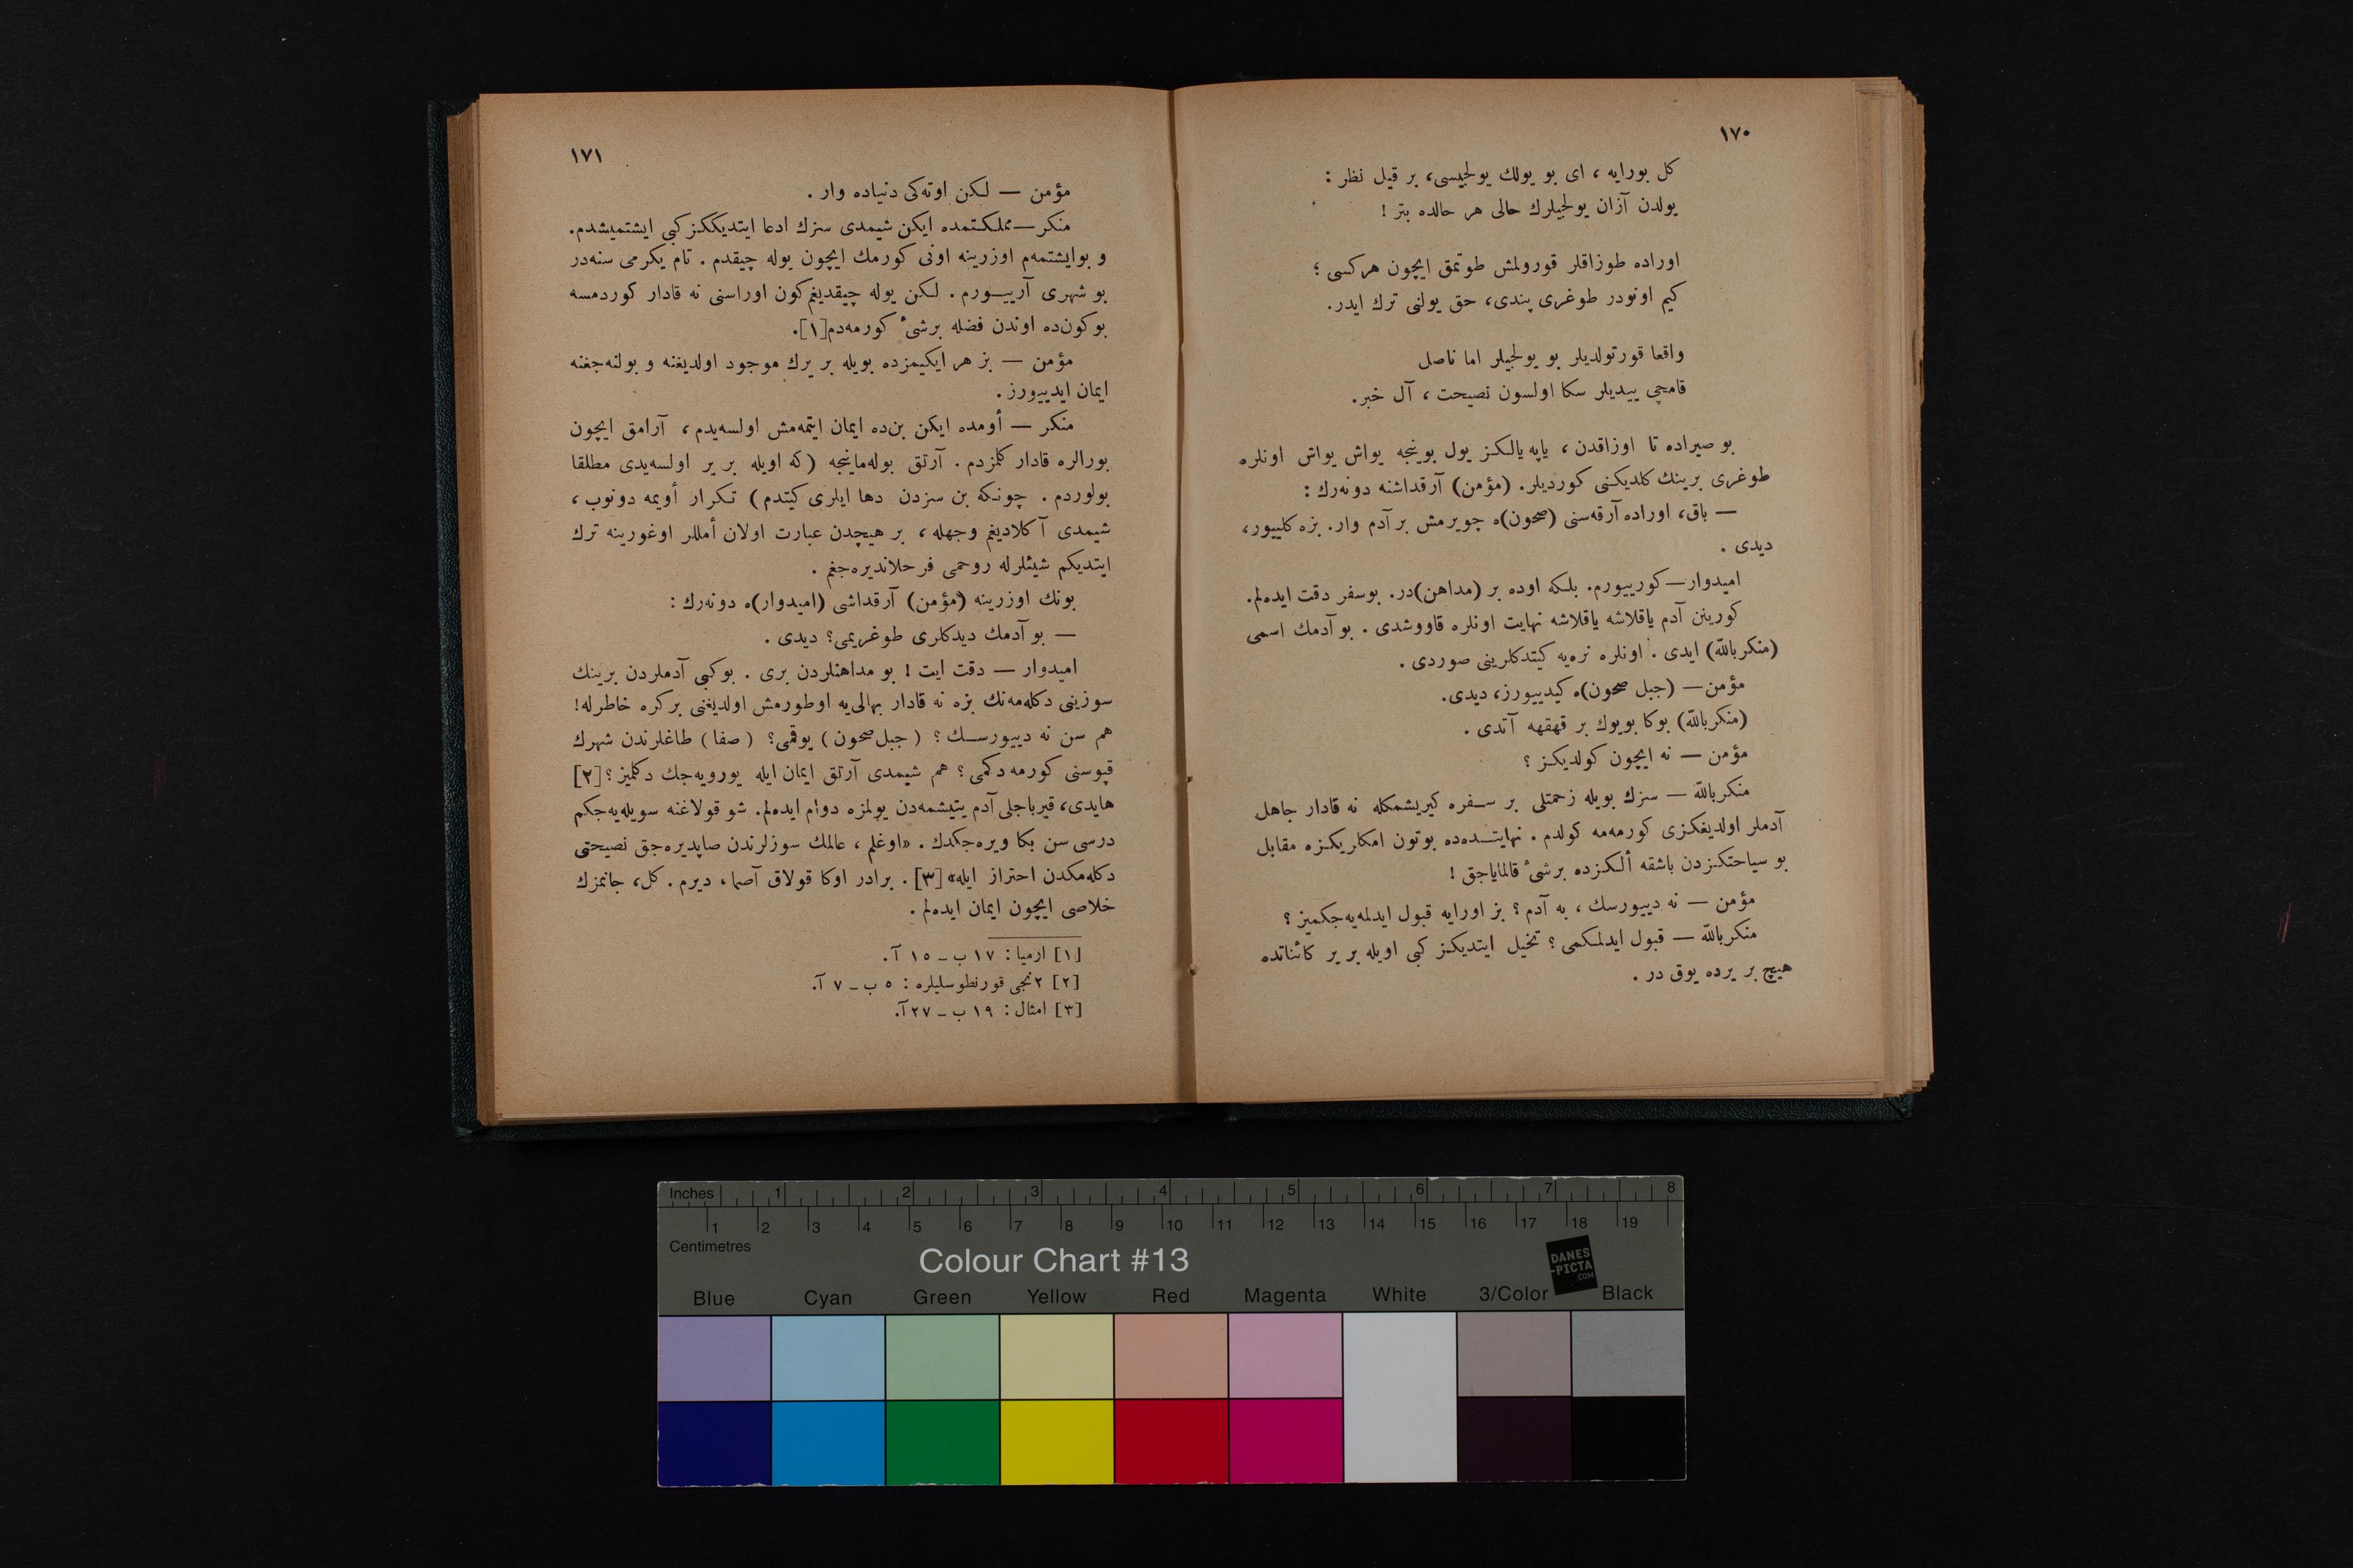 ١٧٠
كل بورايه ، اى بو يولك يولجيسى، بر قيل نظر :
يولدن آزان يولجيلرك حالى هر حالده بتر !
اوراده طوزاقلر قورولمش طوتمق ايچون هركسى ؛
كيم اونودر طوغرى پندى، حق يولنى ترك ايدر.
واقعا قورتولديلر بو يولجيلر اما ناصل
قامچى ييديلر سكا اولسون نصيحت ، آل خبر.
بو صيراده تا اوزاقدن ، ياپه يالكز يول بوينجه يواش يواش اونلره
طوغرى برينك كلديكنى كورديلر. (مؤمن) آرقداشنه دونه‌رك :
— باق، اوراده آرقه‌سنى (صحون)ه چويرمش بر آدم وار. بزه كلييور،
ديدى .
اميدوار—كورييورم. بلكه اوده بر (مداهن)در. بوسفر دقت ايده‌لم.
كورينن آدم ياقلاشه ياقلاشه نهايت اونلره قاووشدى . بو آدمك اسمى
(منكر بالله) ايدى . اونلره نره‌يه كيتدكلرينى صوردى .
مؤمن— (جبل صحون)ه كيدييورز، ديدى.
(منكر بالله) بوكا بويوك بر قهقهه آتدى .
مؤمن — نه ايچون كولديكز ؟
منكر بالله — سزك بويله زحمتلى بر سـفره كيريشمكله نه قادار جاهل
آدملر اولديغكزى كورمه‌مه كولدم . نهايتــده‌ده بوتون امكاريكزه مقابل
بو سياحتكزدن باشقه ألكزده برشىٔ قالماياجق !
مؤمن — نه دييورسك ، به آدم ؟ بز اورايه قبول ايدلمه‌يه‌جكميز ؟
منكر بالله — قبول ايدلمكمى ؟ تخيل ايتديكز كبى اويله بر ير كائناتده
هيچ بر يرده يوق در .
١٧١
مؤمن — لكن اوته‌كى دنياده وار .
منكر—مملكتمده ايكن شيمدى سزك ادعا ايتديككز كبى ايشتميشدم.
و بو ايشتمه‌م اوزرينه اونى كورمك ايچون يوله چيقدم . تام يكرمى سنه‌در
بو شهرى آرييــورم . لكن يوله چيقديغم كون اوراسنى نه قادار كوردمسه
بوكون‌ده اوندن فضله برشىٔ كورمه‌دم[١].
مؤمن — بز هر ايكيمزده بويله بر يرك موجود اولديغنه و بولنه‌جغنه
ايمان ايدييورز .
منكر — أومده ايكن بن‌ده ايمان ايتمه‌مش اولسه‌يدم ، آرامق ايچون
بورالره قادار كلمزدم . آرتق بوله‌ماينجه (كه اويله بر ير اولسه‌يدى مطلقا
بولوردم . چونكه بن سزدن دها ايلرى كيتدم) تكرار أويمه دونوب ،
شيمدى آكلاديغم وجهله ، بر هيچدن عبارت اولان أمللر اوغورينه ترك
ايتديكم شيئلرله روحمى فرحلانديره‌جغم .
بونك اوزرينه (مؤمن) آرقداشى (اميدوار)ه دونه‌رك :
— بو آدمك ديدكلرى طوغريمى؟ ديدى .
اميدوار — دقت ايت ! بو مداهنلردن برى . بوكبى آدملردن برينك
سوزينى دكله‌مه‌نك بزه نه قادار بهالى‌يه اوطورمش اولديغنى بركره خاطرله!
هم سن نه دييورســك ؟ (جبل صحون) يوقمى؟ (صفا) طاغلرندن شهرك
قپوسنى كورمه‌دكمى ؟ هم شيمدى آرتق ايمان ايله يورويه‌جك دكلميز ؟[٢]
هايدى، قيرباجلى آدم يتيشمه‌دن يولمزه دوام ايده‌لم. شو قولاغنه سويليه‌جكم
درسى سن بكا ويره‌جكدك . «اوغلم ، عالمك سوزلرندن صاپديره‌جق نصيحتى
دكله‌مكدن احتراز ايله» [٣] . برادر اوكا قولاق آصما ، ديرم . كل، جانمزك
خلاصى ايچون ايمان ايده‌لم .
[١] ارميا : ١٧ ب ـ ١٥ آ .
[٢] ٢نجى قورنطوسليلره : ٥ ب ـ ٧ آ.
[٣] امثال : ١٩ ب ـ ٢٧ آ.
Inches 1 2 3 4 5 6 7 8
1 2 3 4 5 6 7 8 9 10 11 12 13 14 15 16 17 18 19
Centimetres
Colour Chart #13
DANES
-PICTA
.COM
Blue Cyan Green Yellow Red Magenta White 3/Color Black